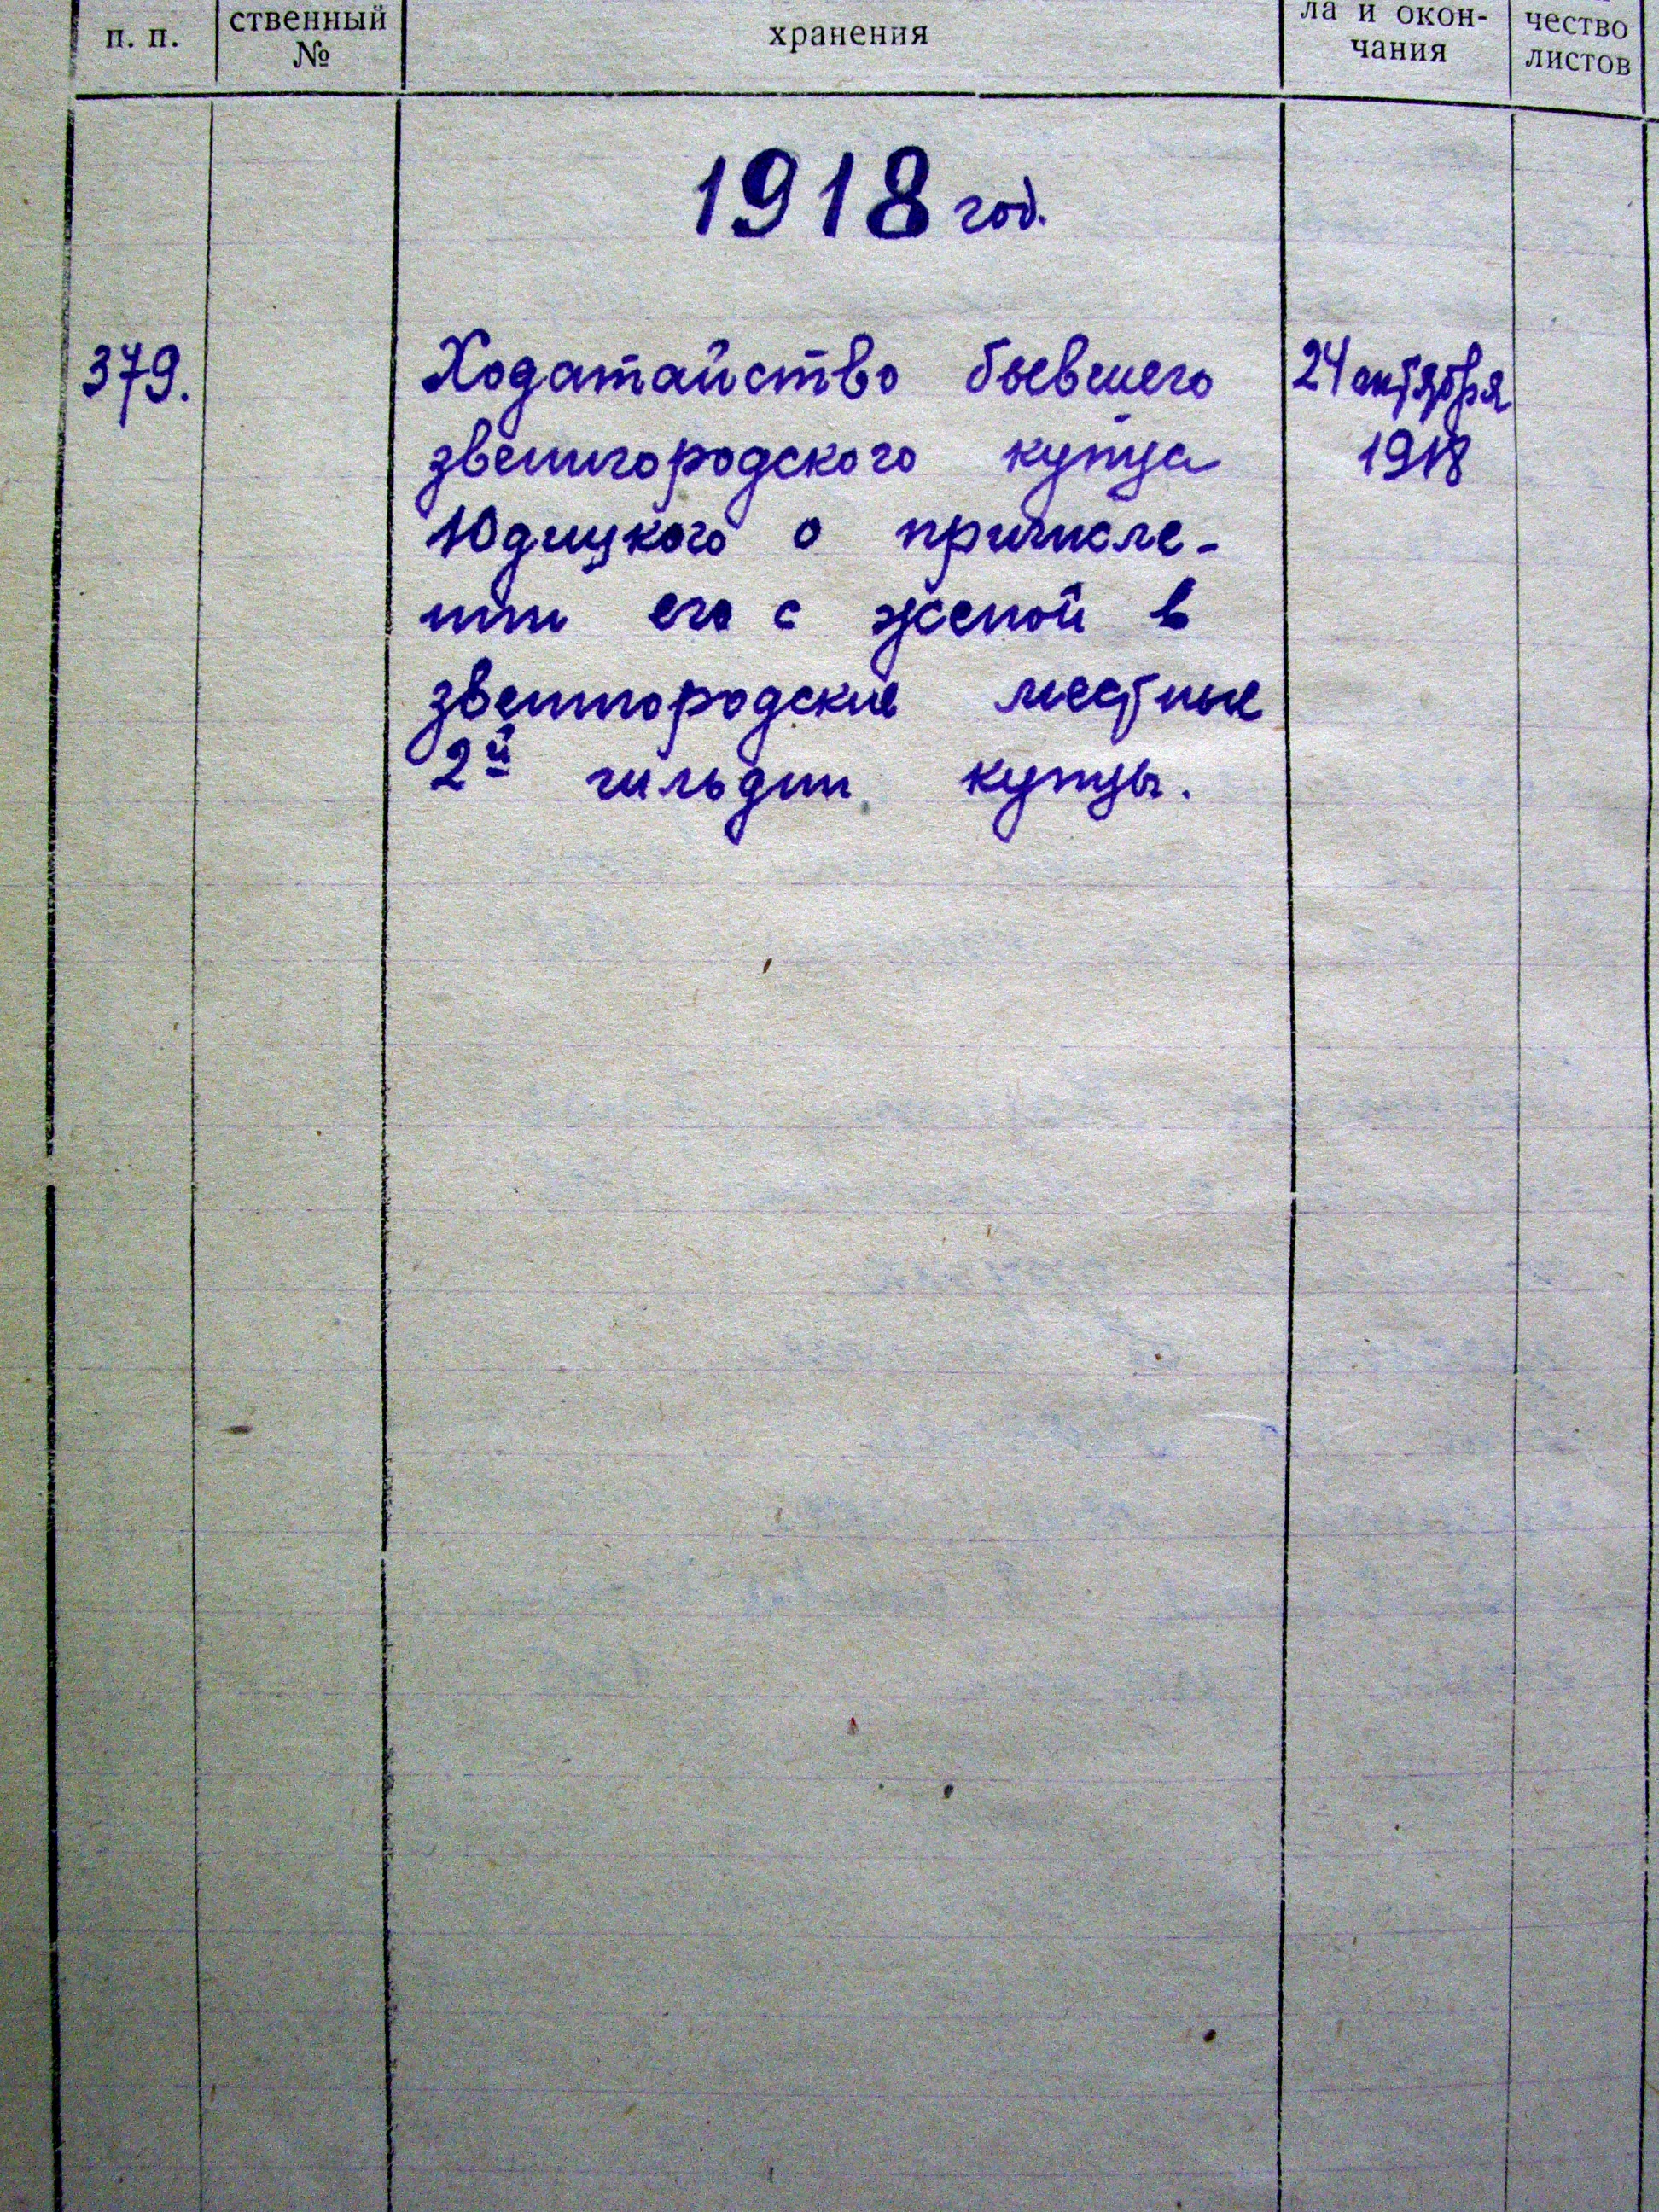 п. п.
ственный
№
хранения
ла и окон-
чания
чество
листов
1918 год.
379.
Ходатайство бывшего
звенигородского купца
Юдицкого о причисле-
нии его с женой в
звенигородские местные
2й гильдии купцы.
24 октября
1918